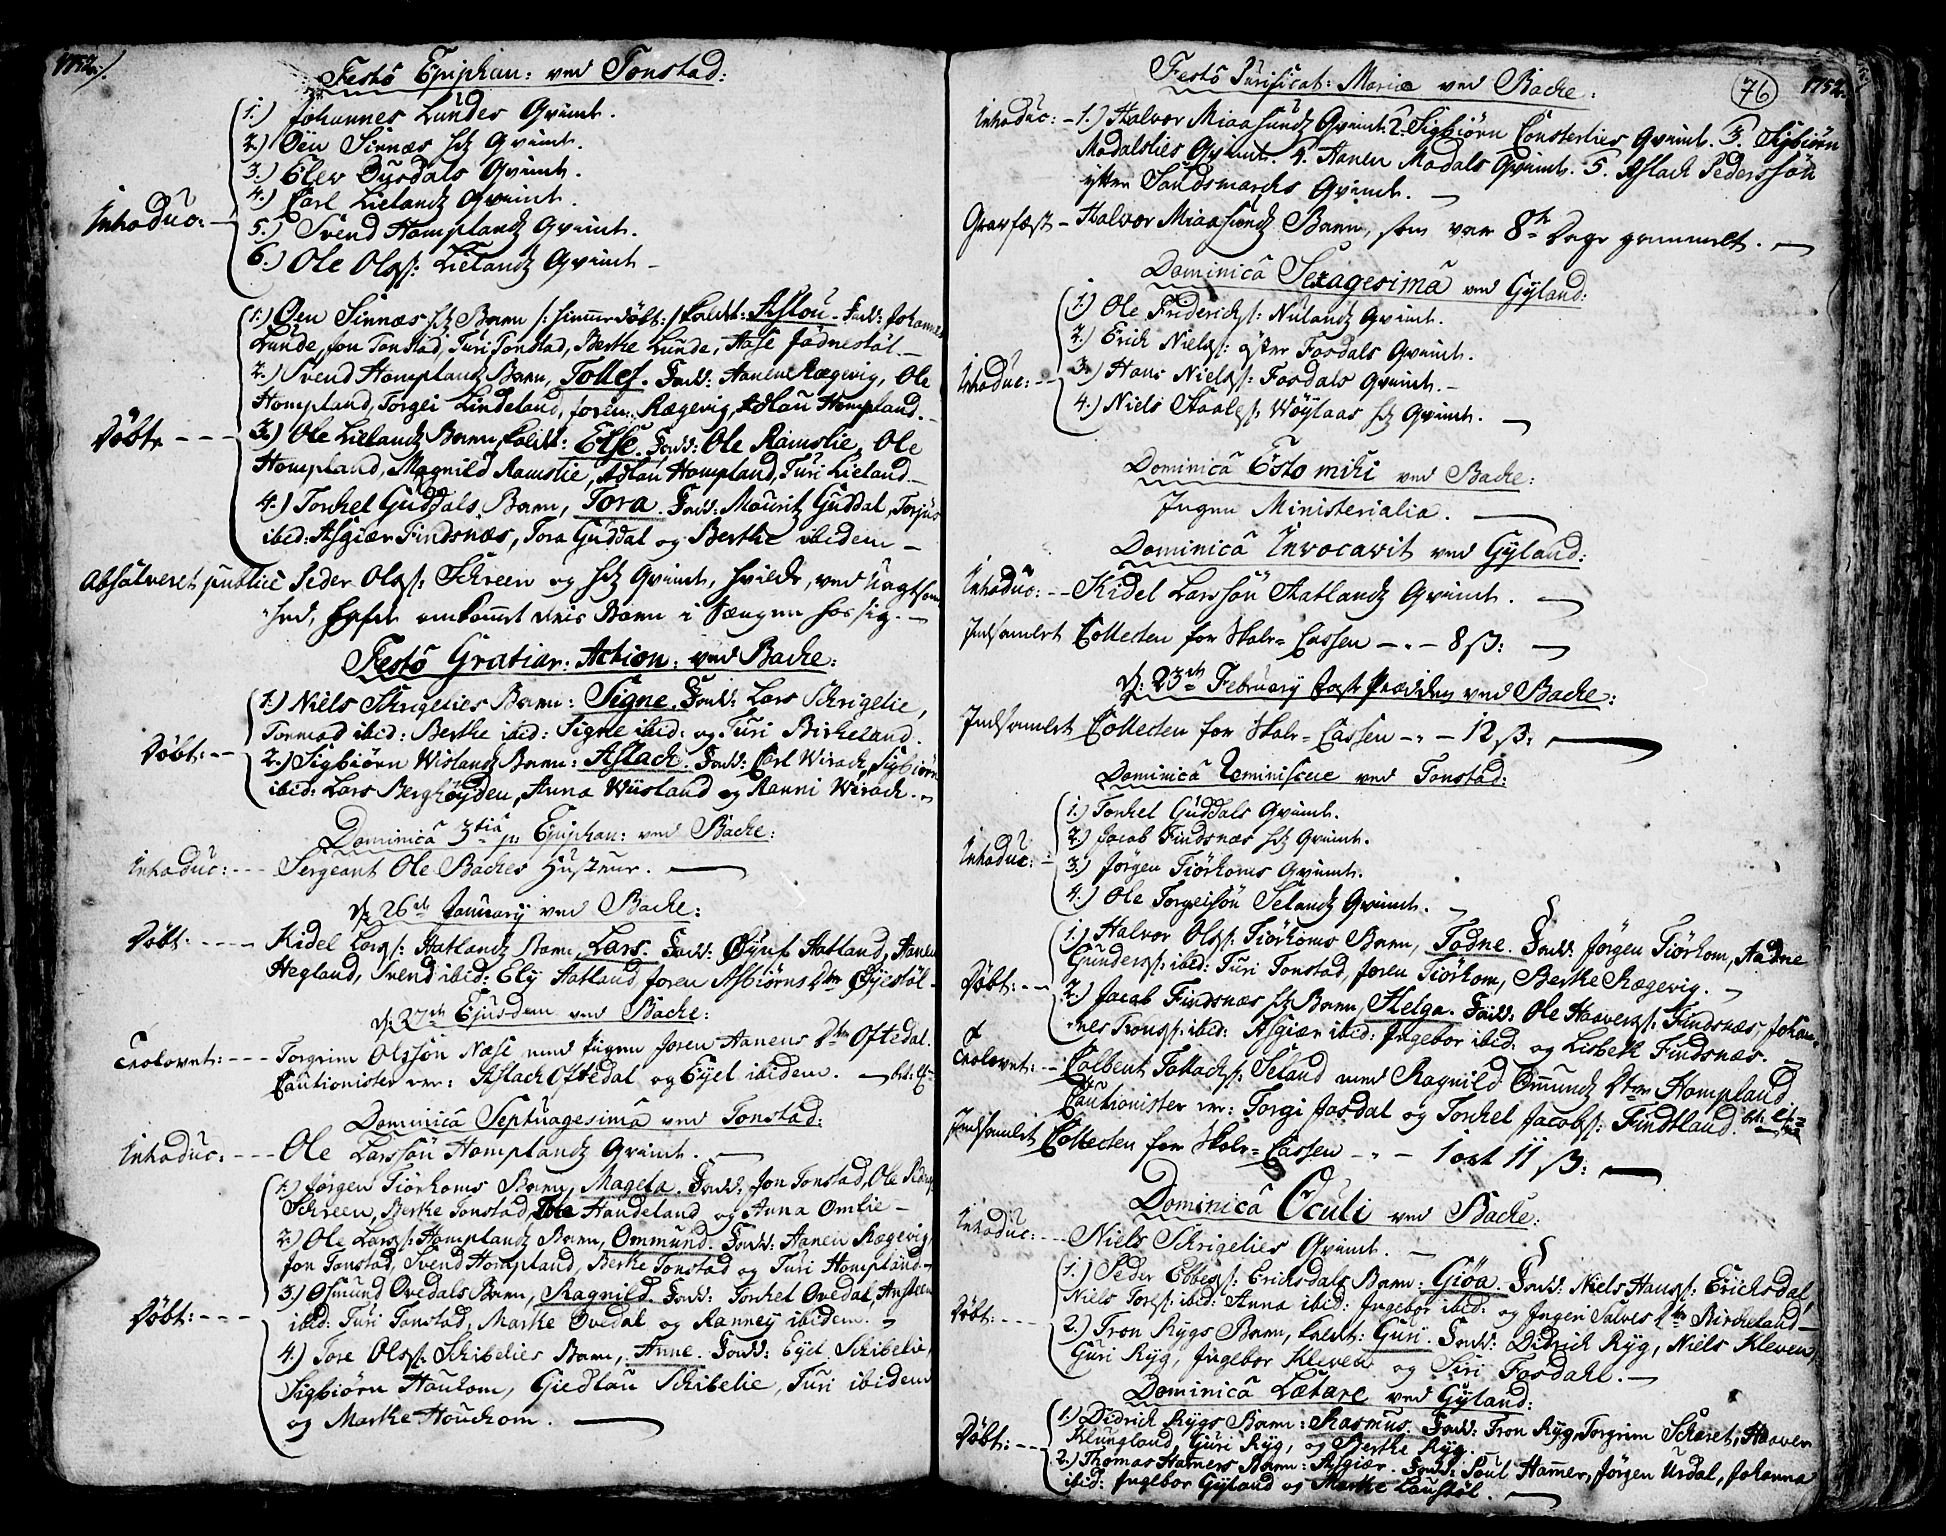 1752.
Festo Epiphan: ved Tonstad:
Introduc:
1.) Johannes Lundes Qvinde.
2.) Øen Sinnæs htz Qvinde.
3.) Elev Dusdals Qvinde.
4.) Carl Lielandz Qvinde.
5.) Svend Homplandz Qvinde.
6.) Ole Olss: Lielandz Qvinde
Døbt
1.) Øen Sinnæs htz Barn /: hiemme døbt:/ kaldt: Aslou. Fadd: Johannes
Lunde, Jon Tonstad, Turi Tonstad, Berthe Lunde, Aase Jødnestøl.
2.) Svend Homplandz Barn, Tollef. Fadd: Hanen Rægevig, Ole
Hompland, Torgei Lindeland, Joren Rægevig, Adlau Hompland.
3.) Ole Lielandz Barn, kaldt: Else. Fadd: Ole Ramslie, Ole
Hompland, Magnild Ramslie, Adlau Hompland, Turi Lieland
4.) Tonkel Guddals Barn, Tora. Fadd: Mouritz Guddal, Torjus
ibid: Asgiær Findsnæs, Tora Guddal og Berthe ibidem
Absolveret publicè Peder Olss: Schreen og htz Qvinde, hvilke, ved Uagtsom-
hed, hafde omkommet deris Barn i Sængen hos sig.
Festo Gratiar: Action: ved Backe:
Døbt:
1.) Niels Schrigelies Barn: Signe. Fadd: Lars Schrigelie,
Tormod ibid: Berthe ibid: Signe ibid: og Turi Birkeland.
2.) Sigbiørn Wislandz Barn: Aslach. Fadd: Carl Wirach, Sigbiørn
ibid: Lars Berghøyden, Anna Wiisland og Ranni Wirach.
Dominica 3tia p: Epiphan: ved Backe:
Introduc: --- Sergeant Ole Backes Hustrue.
d: 26de January ved Backe:
Døbt: --- Kidel Larss: Hatlandz Barn, Lars. Fadd: Øyuf Hatland, Hanen
Hegland, Svend ibid: Ely Hatland, Joren Asbiørns Dtr Øyestøl
d: 27de Ejusdem ved Backe:
Trolovet: --- Torgrim Olssøn Næse med Pigen Joren Hanens Dtr Oftedal.
Cautionister ere: Aslach Oftedal og Eyel ibidem.
Dominica Septuagesima ved Tonstad:
Introduc: --- Ole Larssøn Homplandz Qvinde.
Døbt: ---
1.) Jørgen Tiørhoms Barn, Mageta. Fadd: Jon Tonstad, Ole
Schreen, Berthe Tonstad, Haudeland og Anna Omlie
2.) Ole Larss: Homplandz Barn, Ommund. Fadd: Hanen Rægevig,
Jon Tonstad, Svend Hompland, Berthe Tonstad og Turi Hompland
3.) Osmund Ovedals Barn, Ragnild. Fadd: Tonkel Ovedal, Ansteen
ibid: Turi Tonstad, Marthe Ovedal og Ranney ibidem.
4.) Tore Olss: Schibelies Barn, Anne. Fadd: Eyel Schibelie,
Sigbiørn Houkom, Giedlau Schibelie, Turi ibidem
og Marthe Houckom.
76
1752.
Festo Purificat: Mariæ ved Backe:
Introduc: - 1.) Halvor Miaasundz Qvinde. 2. Sigbiørn Consterlies Qvinde. 3. Sigbiørn
Modalslies Qvinde. 4. Hanen Modals Qvinde. 5. Aslach Pederssøn
ytter Sandsmarchs Qvinde.
Gravfæst - Halvor Miaasundz Barn, som var 8te Dage gammelt.
Dominica Sexagesima ved Gyland:
Introduc: --
1.) Ole Friderichs: Nulandz Qvinde.
2.) Erich Nielss: øster Fosdals Qvinde.
3.) Hans Nielss: Fosdals Qvinde.
4.) Niels Staaless: Wøylaas htz Qvinde.
Dominica Esto mihi ved Backe:
Ingen Ministerialia.
Dominica Invocavit ved Gyland:
Introduc: -- Kidel Larssøn Hatlandz Qvinde.
Indsamlet Collecten for Skole-Cassen -.- 8 ß:
d: 23de February Fast Prædiken ved Backe:
Indsamlet Collecten for Skole-Cassen -.- 12 ß:
Dominica Reminiscere ved Tonstad:
Introduc:
1.) Tonkel Guddals Qvinde.
2.) Jacob Findsnæs htz Qvinde.
3.) Jørgen Tiørhoms Qvinde.
4.) Ole Torgeisøn Selandz Qvinde.
Døbt: --
1.) Halvor Olss: Tiørhoms Barn, Todne. Fadd: Jørgen Tiørhom, Aadne
Gunderss: ibid: Turi Tonstad, Joren Tiørhom, Berthe Rægevig.
2.) Jacob Findsnæs htz Barn, Helga. Fadd: Ole Haavers: Findsnæs, Johan-
nes Tronss: ibid: Asgiær ibid: Ingebor ibid: og Lisbeth Findsnæs.
Trolovet: -- Colbent Tallachs: Seland med Ragnild Ommundz Dtr Hompland
Cautionister ere: Torgi Josdal og Tonkel Jacobs: Findtland.
Indsamlet Collecten for Skole-Cassen -.- 1 ort 11 ß:
Dominica Oculi ved Backe:
Introduc: --- Niels Schrigelies Qvinde.
Døbt: ---
1.) Peder Ebbess: Ericksdals Barn: Giøa. Fadd: Niels Hanss: Ericksdal,
Niels Toress: ibid: Anna ibid: Ingebor ibid: og Ingeri Salves Dtr Bircheland
2.) Tron Rygs Barn, kaldt: Guri. Fadd: Didrich Ryg, Niels Kleven,
Guri Ryg, Ingebor Kleven og Siri Fosdahl.
Dominica Lætare ved Gyland:
Døbt: --
1.) Didrich Rygs Barn: Rasmus. Fadd: Tron Ryg, Torgrim Scharet, Haaver
Klungland, Guri Ryg, og Berthe Ryg.
2.) Thomas Hamers Barn: Asgiær. Fadd: Poul Hamer, Jørgen Urdal, Johanna
ibid: Ingebor Gyland og Marthe Laustøl.